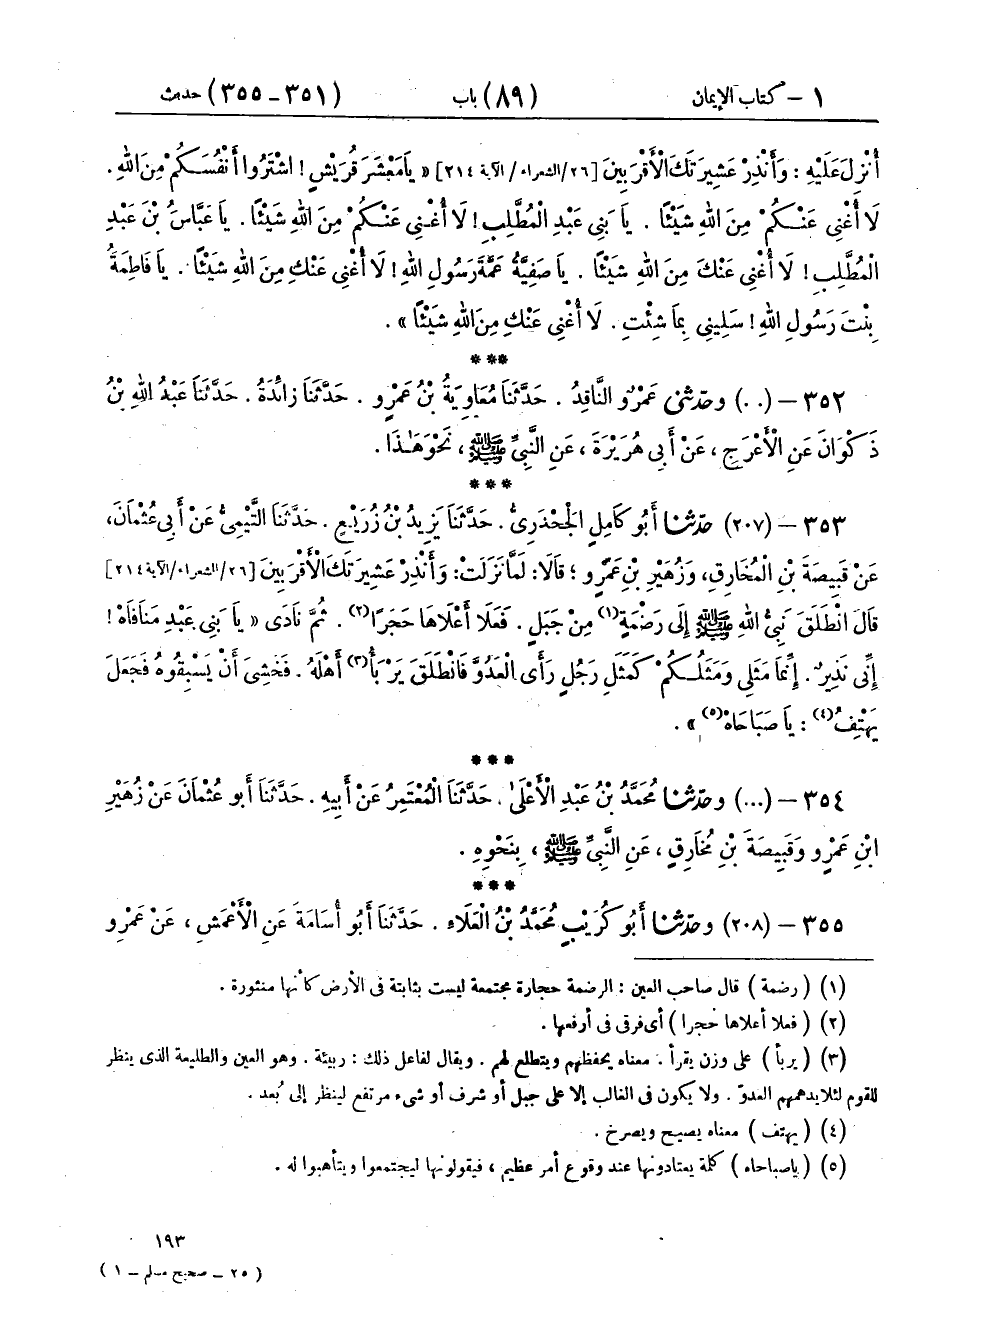 ١ – كتاب الإيمان (٨٩) باب (٣٥١–٣٥٥) حديث
أُنْزِلَ عَلَيْهِ : وَأَنْذِرْ عَشِيرَتَكَ الْأَقْرَبِينَ [٢٦/الشعراء/ الآية ٢١٤] « يَا مَعْشَرَ قُرَيْشٍ ! اشْتَرُوا أَنْفُسَكُمْ مِنَ اللهِ .
لَا أُغْنِي عَنْكُمْ مِنَ اللهِ شَيْئًا . يَا بَنِي عَبْدِ الْمُطَّلِبِ ! لَا أُغْنِي عَنْكُمْ مِنَ اللهِ شَيْئًا . يَا عَبَّاسُ بْنَ عَبْدِ
الْمُطَّلِبِ ! لَا أُغْنِي عَنْكَ مِنَ اللهِ شَيْئًا . يَا صَفِيَّةُ عَمَّةَ رَسُولِ اللهِ ! لَا أُغْنِي عَنْكِ مِنَ اللهِ شَيْئًا . يَا فَاطِمَةُ
بِنْتَ رَسُولِ اللهِ ! سَلِينِي بِمَا شِئْتِ . لَا أُغْنِي عَنْكِ مِنَ اللهِ شَيْئًا » .
***
٣٥٢ – (..) وحدّثني عَمْرٌو النَّاقِدُ . حَدَّثَنَا مُعَاوِيَةُ بْنُ عَمْرٍو . حَدَّثَنَا زَائِدَةُ . حَدَّثَنَا عَبْدُ اللهِ بْنُ
ذَكْوَانَ عَنِ الْأَعْرَجِ ، عَنْ أَبِي هُرَيْرَةَ ، عَنِ النَّبِيِّ ﷺ ، نَحْوَ هَٰذَا .
***
٣٥٣ – (٢٠٧) حدّثنا أَبُو كَامِلٍ الْجَحْدَرِيُّ . حَدَّثَنَا يَزِيدُ بْنُ زُرَيْعٍ . حَدَّثَنَا التَّيْمِيُّ عَنْ أَبِي عُثْمَانَ ،
عَنْ قَبِيصَةَ بْنِ الْمُخَارِقِ ، وَزُهَيْرِ بْنِ عَمْرٍو ؛ قَالَا : لَمَّا نَزَلَتْ : وَأَنْذِرْ عَشِيرَتَكَ الْأَقْرَبِينَ [٢٦/الشعراء/الآية ٢١٤]
قَالَ انْطَلَقَ نَبِيُّ اللهِ ﷺ إِلَى رَضْمَةٍ(١) مِنْ جَبَلٍ . فَعَلَا أَعْلَاهَا حَجَرًا(٢) . ثُمَّ نَادَى « يَا بَنِي عَبْدِ مَنَافَاهْ !
إِنِّي نَذِيرٌ . إِنَّمَا مَثَلِي وَمَثَلُكُمْ كَمَثَلِ رَجُلٍ رَأَى الْعَدُوَّ فَانْطَلَقَ يَرْبَأُ(٣) أَهْلَهُ . فَخَشِيَ أَنْ يَسْبِقُوهُ فَجَعَلَ
يَهْتِفُ(٤) : يَا صَبَاحَاهْ(٥) » .
***
٣٥٤ – (...) وحدّثنا مُحَمَّدُ بْنُ عَبْدِ الْأَعْلَىٰ . حَدَّثَنَا الْمُعْتَمِرُ عَنْ أَبِيهِ . حَدَّثَنَا أَبُو عُثْمَانَ عَنْ زُهَيْرِ
ابْنِ عَمْرٍو وَقَبِيصَةَ بْنِ مُخَارِقٍ ، عَنِ النَّبِيِّ ﷺ ، بِنَحْوِهِ .
***
٣٥٥ – (٢٠٨) وحدّثنا أَبُو كُرَيْبٍ مُحَمَّدُ بْنُ الْعَلَاءِ . حَدَّثَنَا أَبُو أُسَامَةَ عَنِ الْأَعْمَشِ ، عَنْ عَمْرِو
(١) ( رضمة ) قال صاحب العين : الرضمة حجارة مجتمعة ليست بثابتة فى الأرض كأنها منثورة .
(٢) ( فعلا أعلاها حجرا ) أى فرقى فى أرفعها .
(٣) ( يربأ ) على وزن يقرأ . معناه يحفظهم ويتطلع لهم . ويقال لفاعل ذلك : ربيئة . وهو العين والطليعة الذى ينظر
للقوم لئلا يدهمهم العدوّ . ولا يكون فى الغالب إلا على جبل أو شرف أو شىء مرتفع لينظر إلى بُعد .
(٤) ( يهتف ) معناه يصيح ويصرخ .
(٥) ( ياصباحاه ) كلمة يعتادونها عند وقوع أمر عظيم ، فيقولونها ليجتمعوا ويتأهبوا له .
١٩٣
( ٢٥ – صحيح مسلم – ١ )